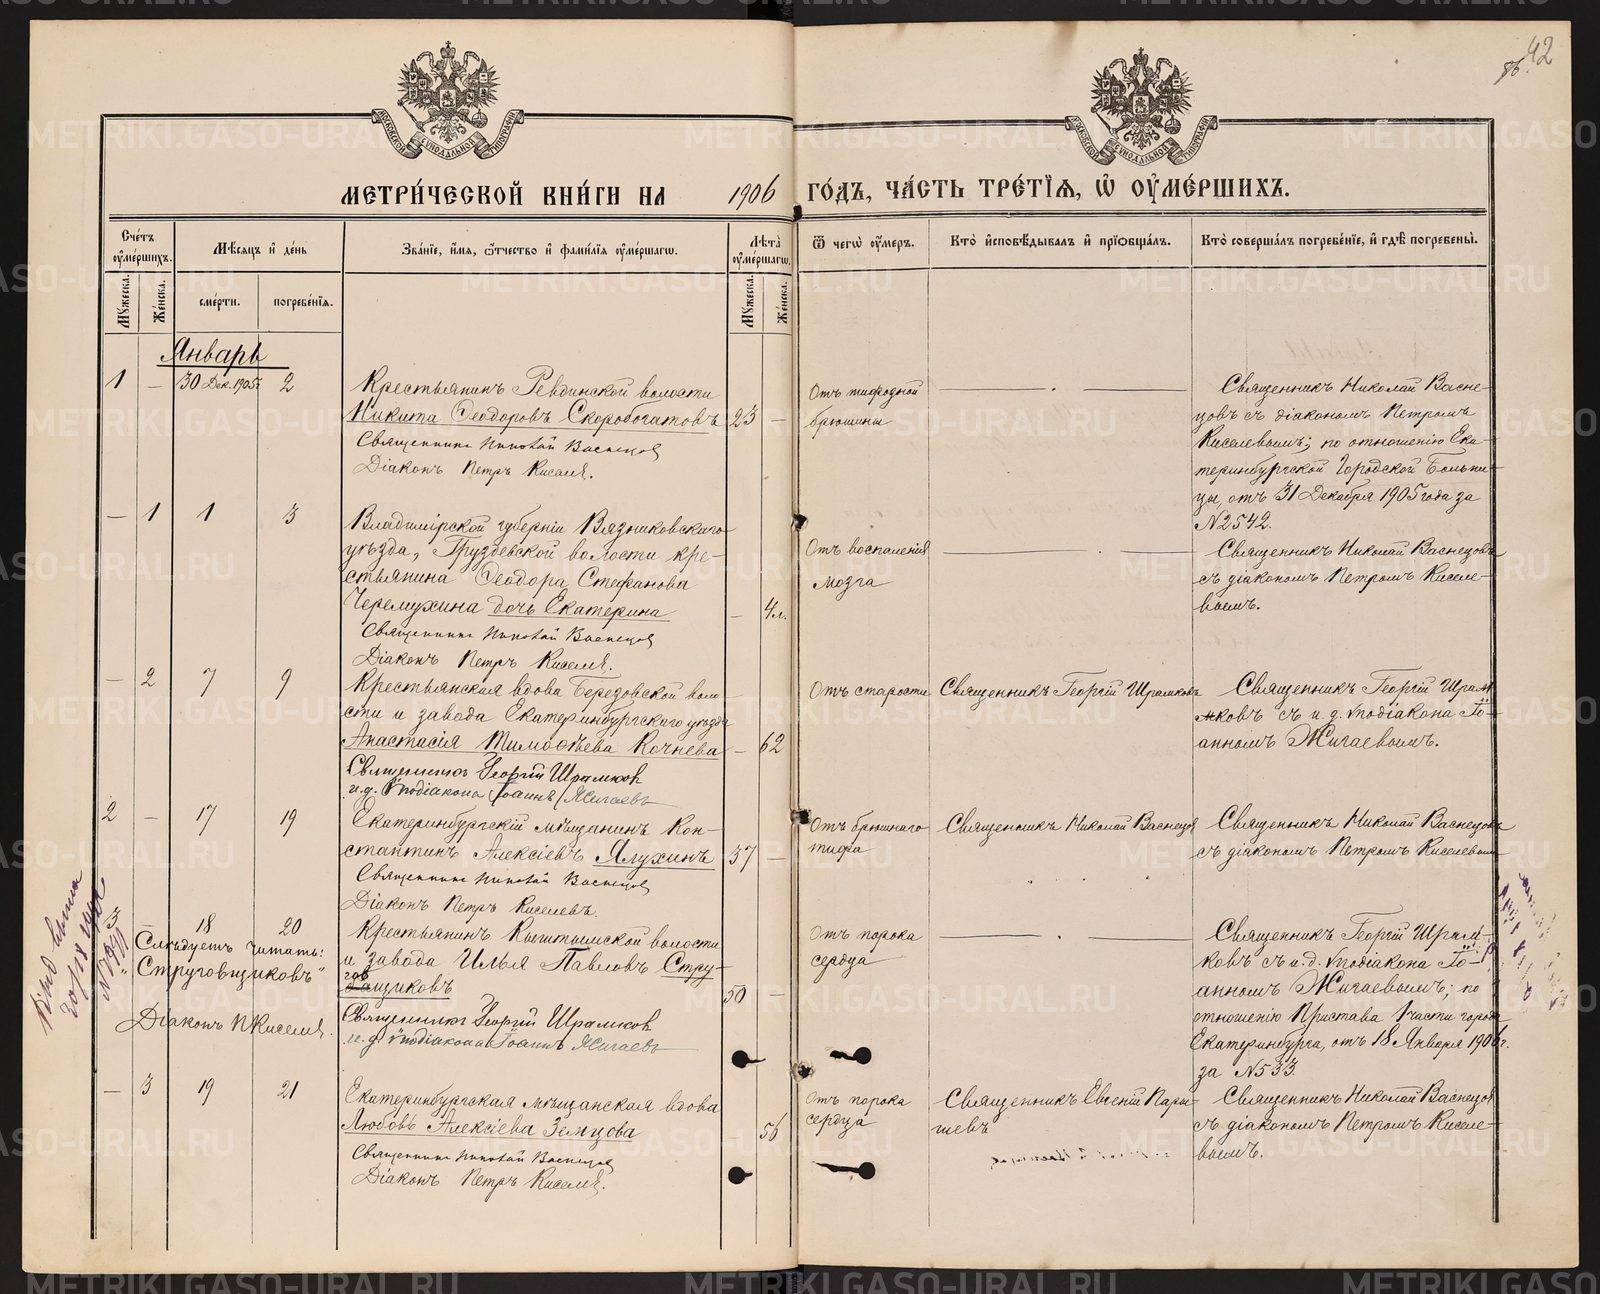 42
МЕТРИ́ЧЕСКОЙ КНИ́ГИ НА 1906 ГО́ДЪ, ЧА́СТЬ ТРЕ́ТІѦ, Ѡ҆ ОУ҆МЕ́РШИХЪ.
Сче́тъ оу҆ме́ршихъ.
Мꙋ́жеска.
Же́нска.
Мѣ́сяцъ и҆ де́нь
сме́рти.
погребе́нїѧ.
Зва́нїе, и҆́мѧ, ѻ҆́тчество и҆ фами́лїѧ оу҆ме́ршагѡ.
Лѣ́та оу҆ме́ршагѡ.
Мꙋ́жеска.
Же́нска.
Ѿ чегѡ̀ оу҆́меръ.
Кто̀ и҆сповѣ́дывалъ и҆ прїѡбща́лъ.
Кто̀ соверша́лъ погребе́нїе, и҆ гдѣ̀ погребены̀.
Январь
1 — 30 Дек. 1905г. 2
Крестьянинъ Ревдинской волости
Никита Ѳеодоровъ Скоробогатовъ 23 —
Священникъ Николай Васнецов
Діаконъ Петръ Киселев.
Отъ тифозной
брюшины
Священникъ Николай Васне-
цовъ съ діакономъ Петромъ
Киселевымъ; по отношенію Ека-
теринбургской Городской Больни-
цы, отъ 31 Декабря 1905 года за
№ 2542.
— 1 1 3
Владимірской губерніи Вязниковскаго
уѣзда, Груздевской волости кре-
стьянина Ѳеодора Стефанова
Черемухина дочь Екатерина — 4 л.
Священникъ Николай Васнецов
Діаконъ Петръ Киселев.
Отъ воспаленія
мозга
Священникъ Николай Васнецовъ
съ діакономъ Петромъ Киселе-
вымъ.
— 2 7 9
Крестьянская вдова Березовской воло-
сти и завода Екатеринбургскаго уѣзда
Анастасія Тимоѳѣева Кочнева — 62
Священникъ Георгій Шрамков
и.д. Ѵподіакона Іоаннъ Жигаевъ
Отъ старости
Священникъ Георгій Шрамковъ
Священникъ Георгій Шрам-
ковъ съ и.д. Ѵподіакона Іо-
анномъ Жигаевымъ.
2 — 17 19
Екатеринбургскій мѣщанинъ Кон-
стантинъ Алексіевъ Ялухинъ 37 —
Священникъ Николай Васнецов
Діаконъ Петръ Киселевъ.
Отъ брюшнаго
тифа
Священникъ Николай Васнецов
Священникъ Николай Васнецовъ
съ діакономъ Петромъ Киселевым
3 — 18 20
Слѣдуетъ читать:
„Струговщиковъ“
Діаконъ П Киселев.
Крестьянинъ Кыштымской волости
и завода Илья Павловъ Стру-
гов
щиковъ 50 —
Священникъ Георгій Шрамков
и.д. ѵподіакона Іоаннъ Жигаевъ
Отъ порока
сердца
Священникъ Георгій Шрам-
ковъ съ и.д. Ѵподіакона Іо-
анномъ Жигаевымъ; по
отношенію Пристава 1 части города
Екатеринбурга, отъ 18 Января 1906 г.
за № 533.
— 3 19 21
Екатеринбургская мѣщанская вдова
Любовь Алексіева Земцова 56
Священникъ Николай Васнецов
Діаконъ Петръ Киселев.
Отъ порока
сердца
Священникъ Евгеній Пары-
шевъ
Священникъ Николай Васнецов
съ діакономъ Петромъ Киселе-
вымъ.
METRIKI.GASO-URAL.RU